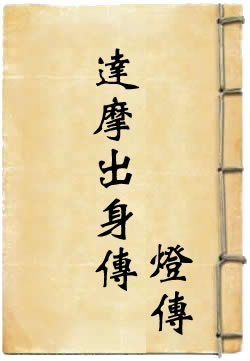 達摩出身傳
燈傳